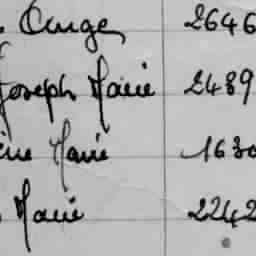 Ange 2646
Joseph Marie 2489
Marie 1630
Marie 2242